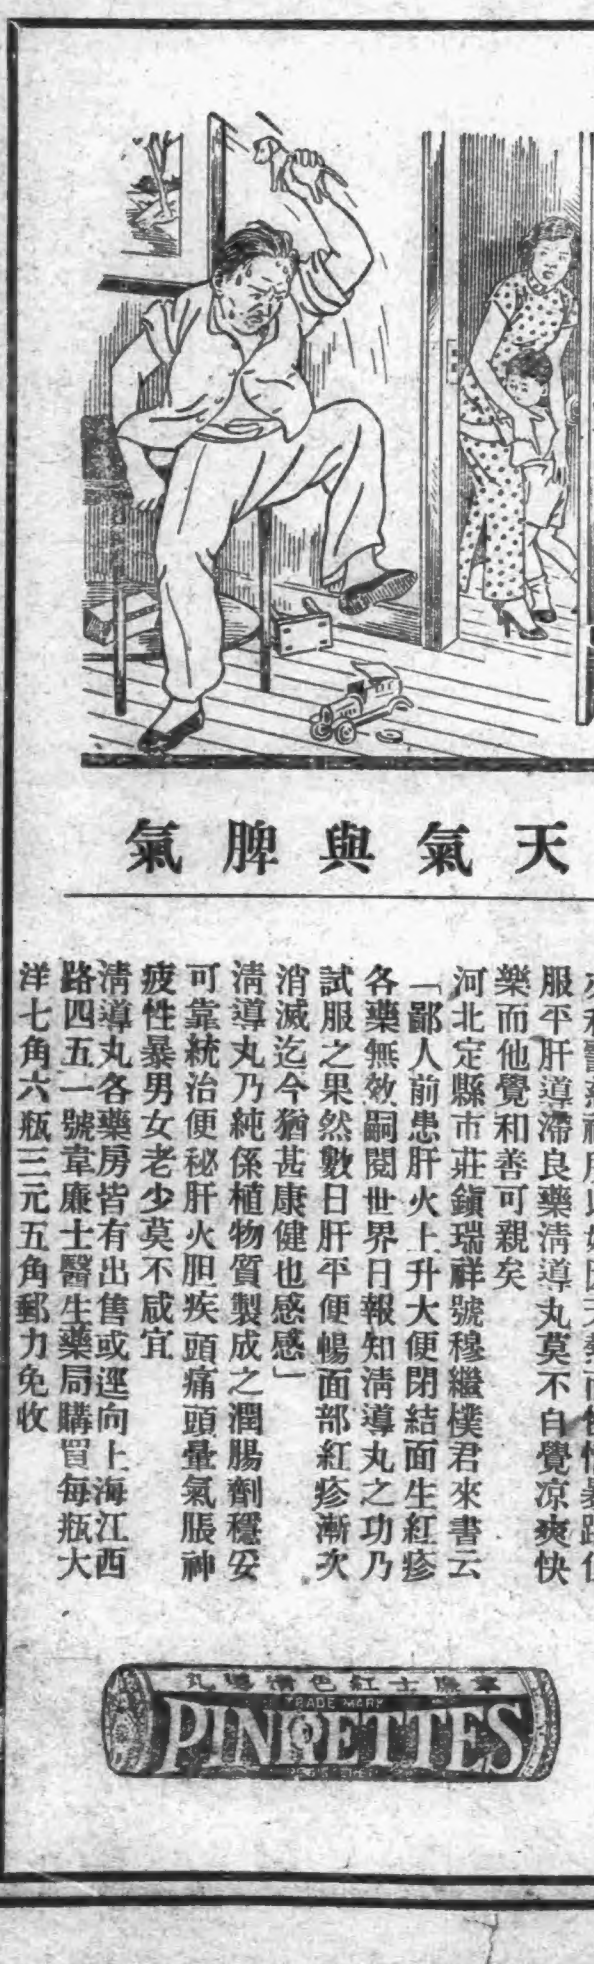 天氣與脾氣
服平肝導滯良藥清導丸莫不自覺凉爽快
樂而他覺和善可親矣
河北定縣市莊鎭瑞祥號穆繼樸君來書云
「鄙人前患肝火上升大便閉結面生紅疹
各藥無效嗣閱世界日報知清導丸之功乃
試服之果然數日肝平便暢面部紅疹漸次
消滅迄今猶甚康健也感感」
清導丸乃純係植物質製成之潤腸劑穩妥
可靠統治便秘肝火胆疾頭痛頭暈氣脹神
疲性暴男女老少莫不咸宜
清導丸各藥房皆有出售或逕向上海江西
路四五一號韋廉士醫生藥局購買每瓶大
洋七角六瓶三元五角郵力免收
韋廉士紅色清導丸
TRADE MARK
PINKETTES